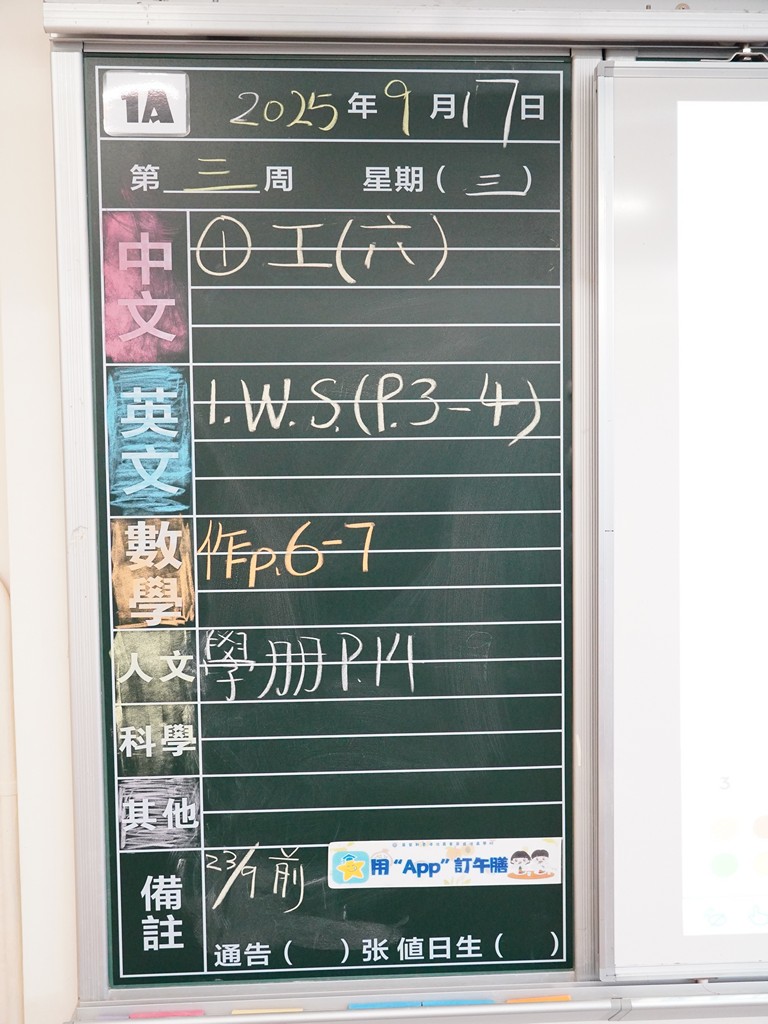 1A 2025年9月17日
第三周 星期(三)
中文 ①工(六)
英文 1.W.S.(P.3-4)
數學 作p.6-7
人文 學册P.14
科學
其他
備註 23/9前 用“App”訂午膳
通告( )张 值日生( )
3